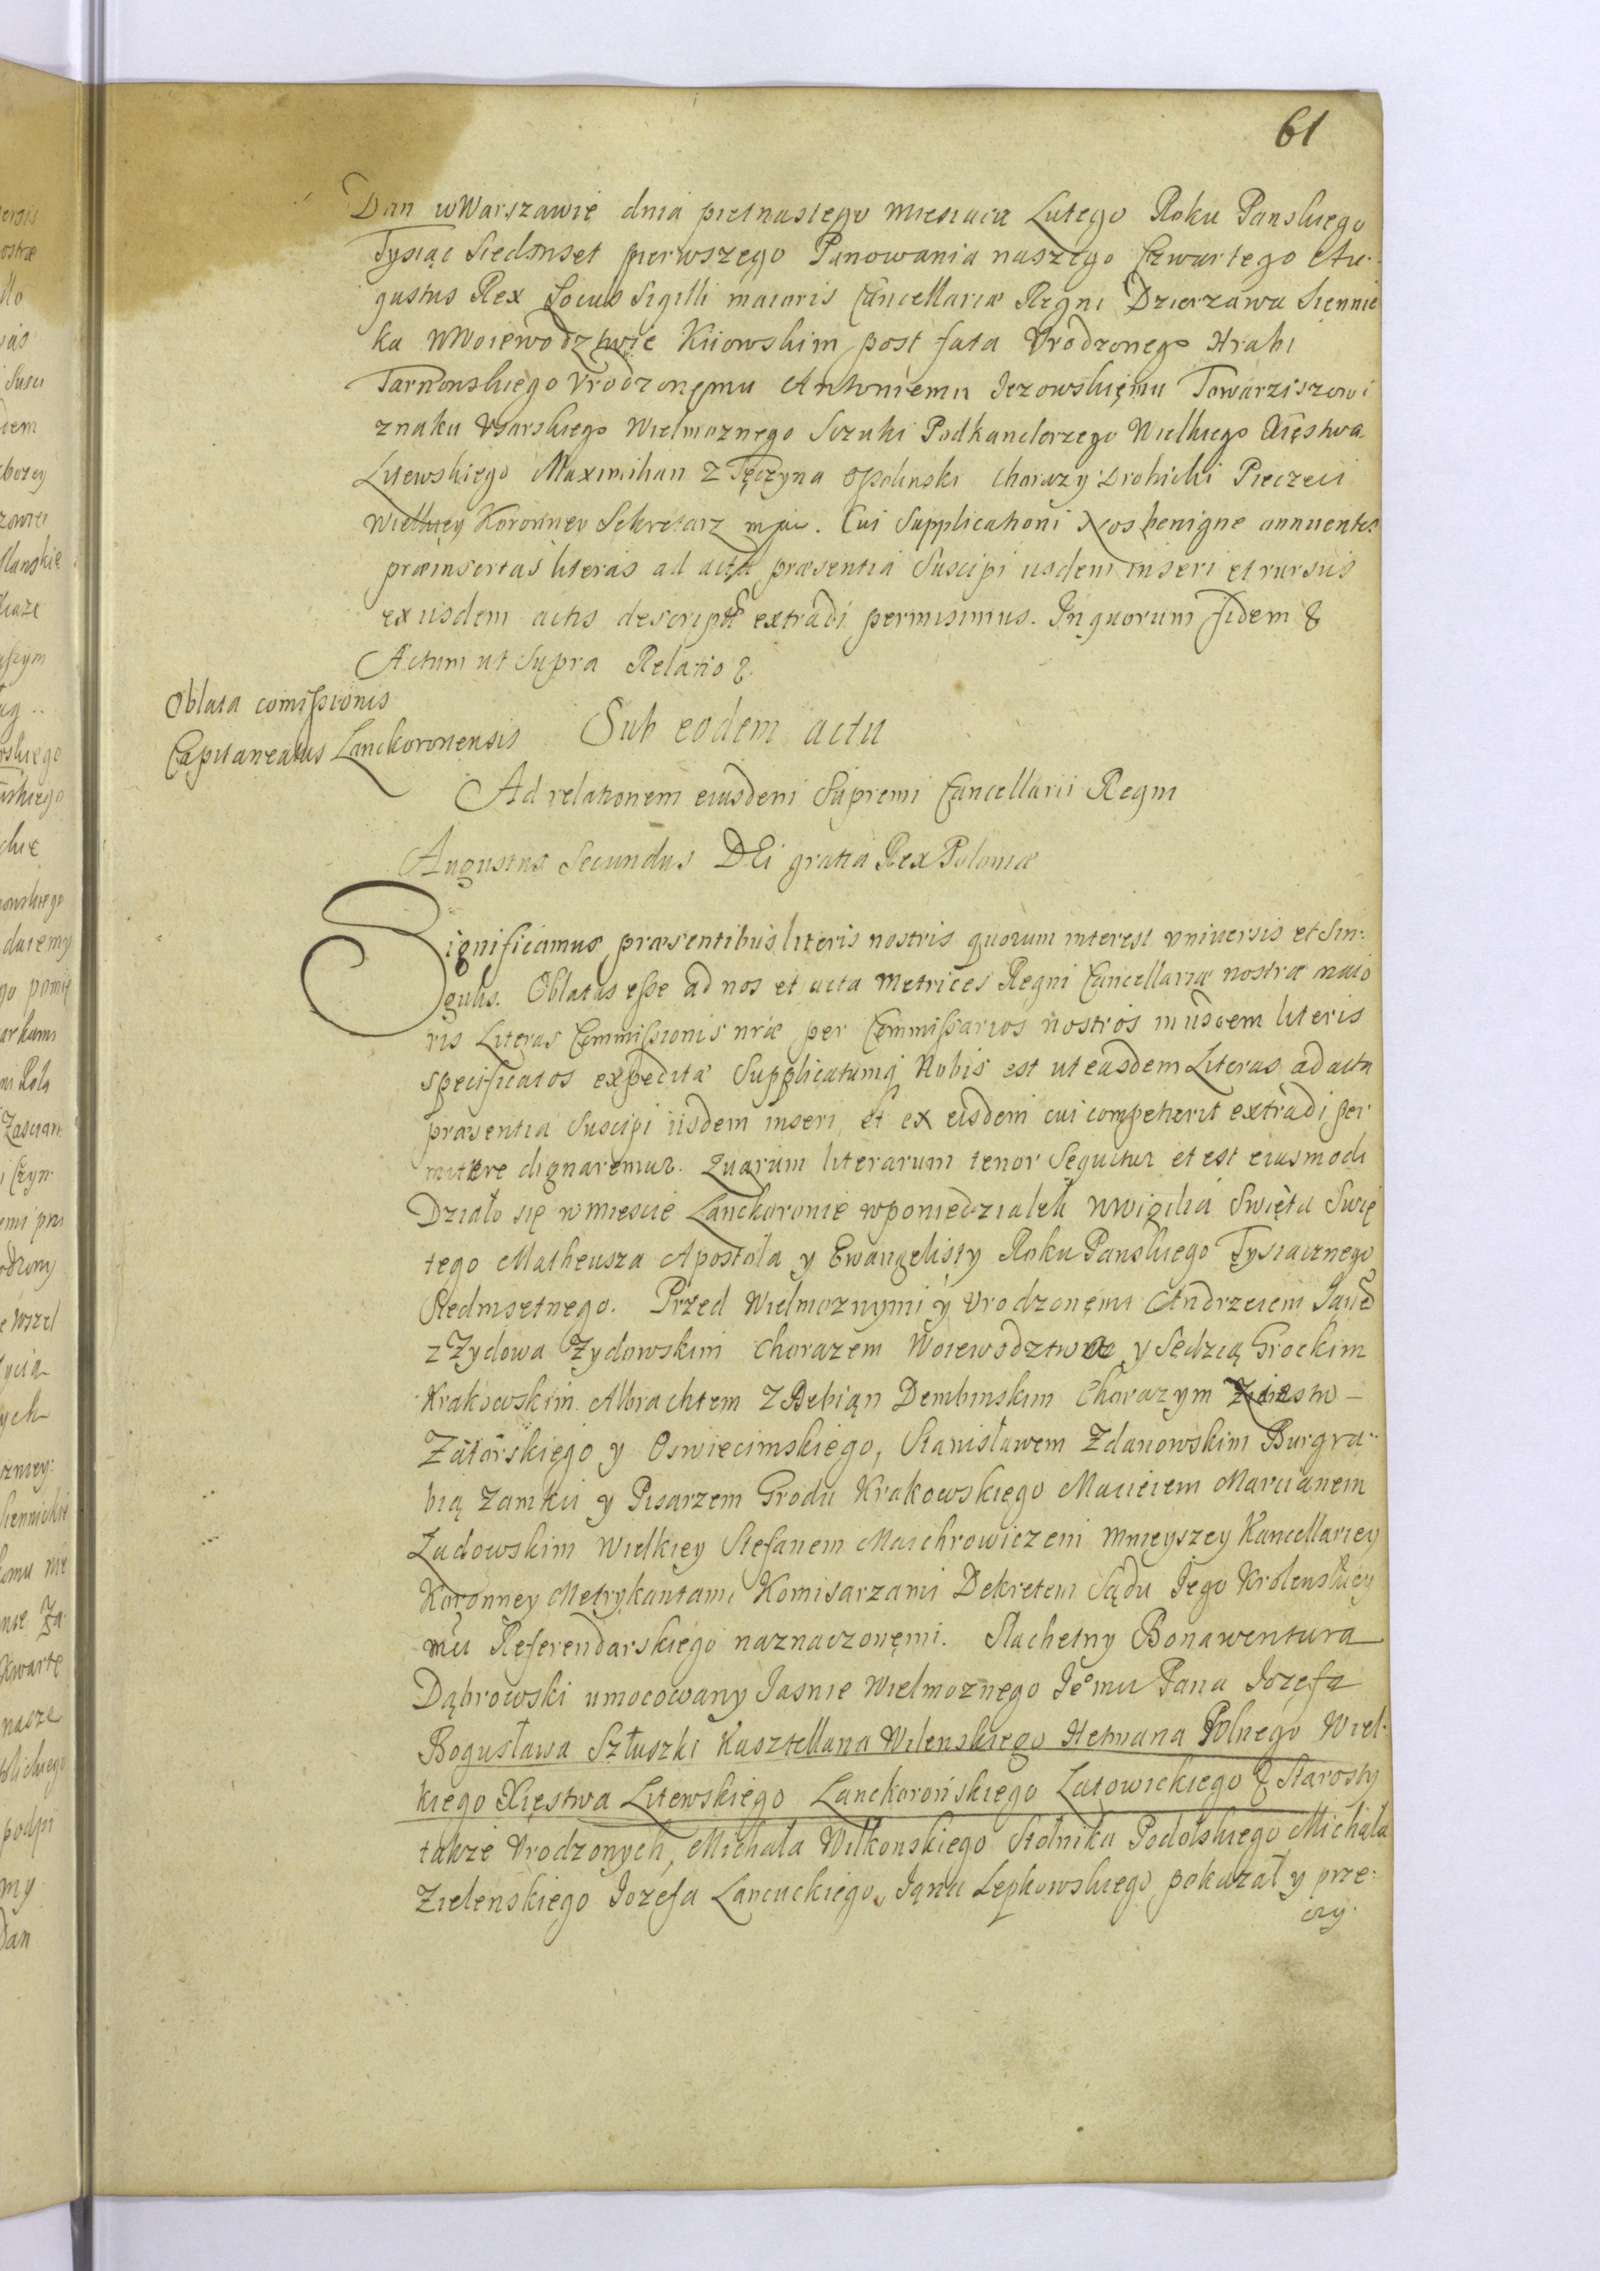 61
Dan w Warszawie dnia pietnastego Miesiaca Lutego Roku Panskiego
Tysiąc Siedmset pierwszego Panowania naszego Czwartego Au-
gustus Rex Locus Sigilli maioris Cancellariæ Regni Dzierzawa Siennic
ka w Woiewodztwie Kiiowskim post fata Vrodzonego Hrabi
Tarnowskiego Vrodzonemu Antoniemu Jezowskięmu Towarziszowi
znaku Vsarskiego Wielmoznego Sczuki Podkanclerzego Wielkiego Xięstwa
Litewskiego Maximilian z Tęczyna Ossolinski Chorazy Drohicki Pieczeci
Wielkiey Koronney Sekretarz mpp. Cui Supplicationi Nos benigne annuentes
præinsertas literas ad acta præsentia Suscipi iisdem inseri et rursus
ex iisdem actis descriptas extradi permisimus. In quorum fidem &
Actum ut Supra Relatio &.
Oblata comissionis
Capitaneatus Lanckoronensis
Sub eodem actu
Ad relationem eiusdem Supremi Cancellarii Regni
Augustus Secundus DEi gratia Rex Poloniæ
Significamus præsentibus literis nostris quorum interest vniuersis et Sin:
gulis. Oblatas esse ad nos et acta Metrices Regni Cancellariæ nostræ maio
ris Literas Commissionis nræ per Commissarios nostros in iisdem literis
specificatos expeditæ Supplicatumq Nobis est ut easdem Literas ad acta
præsentia Suscipi iisdem inseri, et ex eisdem cui competierit extradi per
mittere dignaremur. Quarum literarum tenor Sequitur et est eiusmodi
Działo się w miescie Lanckoronie w poniedzialek w Wigilią Swięta Swię
tego Matheusza Apostoła y Ewangelisty Roku Panskiego Tysiacznego
Siedmsetnego. Przed Wielmoznymi y Vrodzonęmi Andrzeiem
z Zydowa Zydowskim Chorazem Woiewodztwa y Sedzią Grockim
Krakowskim. Albrachtem z Debian Dembinskim Chorazym Xięstw-
Zatorskięgo y Oswiecimskiego, Stanisławem Zdanowskim Burgra-
bią Zamku y Pisarzem Grodu Krakowskięgo Macieiem Marcianem
Ladowskim Wielkiey Stefanem Maichrowiczem Mnieyszey Kancellariey
Koronney Metrykantami Komisarzami Dekretem Sądu Jego Krolewskiey
mci Referendarskiego naznaczonęmi. Slachetny Bonawentura
Dąbrowski umocowany Jasnie Wielmoznego Jeomu Pana Jozefa
Bogusława Szłuszki Kasztellana Wilenskiego Hetmana Polnego Wiel-
kiego Xięstwa Litewskiego Lanckorońskiego Latowickiego & Starosty
takze Vrodzonych, Michała Wilkonskiego Stolnika Podolskiego Michała
Zielenskiego Jozefa Lancuckiego, Jana Lepkowskiego pokazał y prze:
czy.